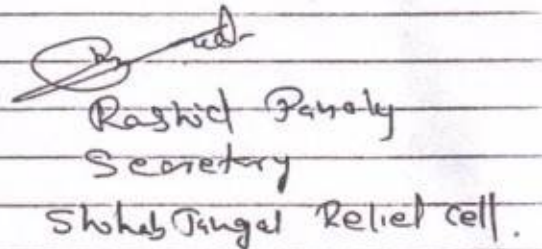 Rashid Panaly
Secretary
Shihab Tangal Relief Cell.